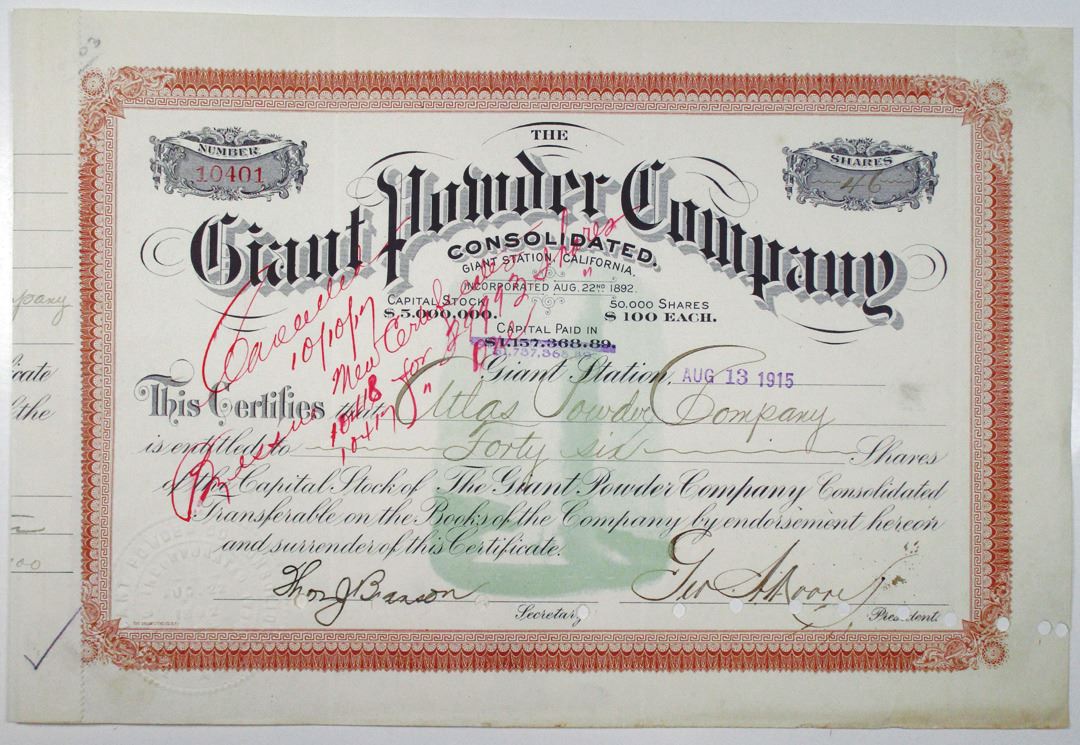 NUMBER
10401
SHARES
46
THE
Giant Powder Company
CONSOLIDATED.
GIANT STATION, CALIFORNIA.
INCORPORATED AUG. 22ND 1892.
CAPITAL STOCK
$5,000,000.
50,000 SHARES
$100 EACH.
CAPITAL PAID IN
$1,157,368.89.
Giant Station, AUG 13 1915
This Certifies that Atlas Powder Company
is entitled to Forty six Shares
of the Capital Stock of The Giant Powder Company Consolidated
Transferable on the Books of the Company by endorsement hereon
and surrender of this Certificate.
Thos J Branson
Secretary
Geo A Moore
President.
Cancelled
10/10/17
New
10418 for
10417 "
pany
icate
the
00